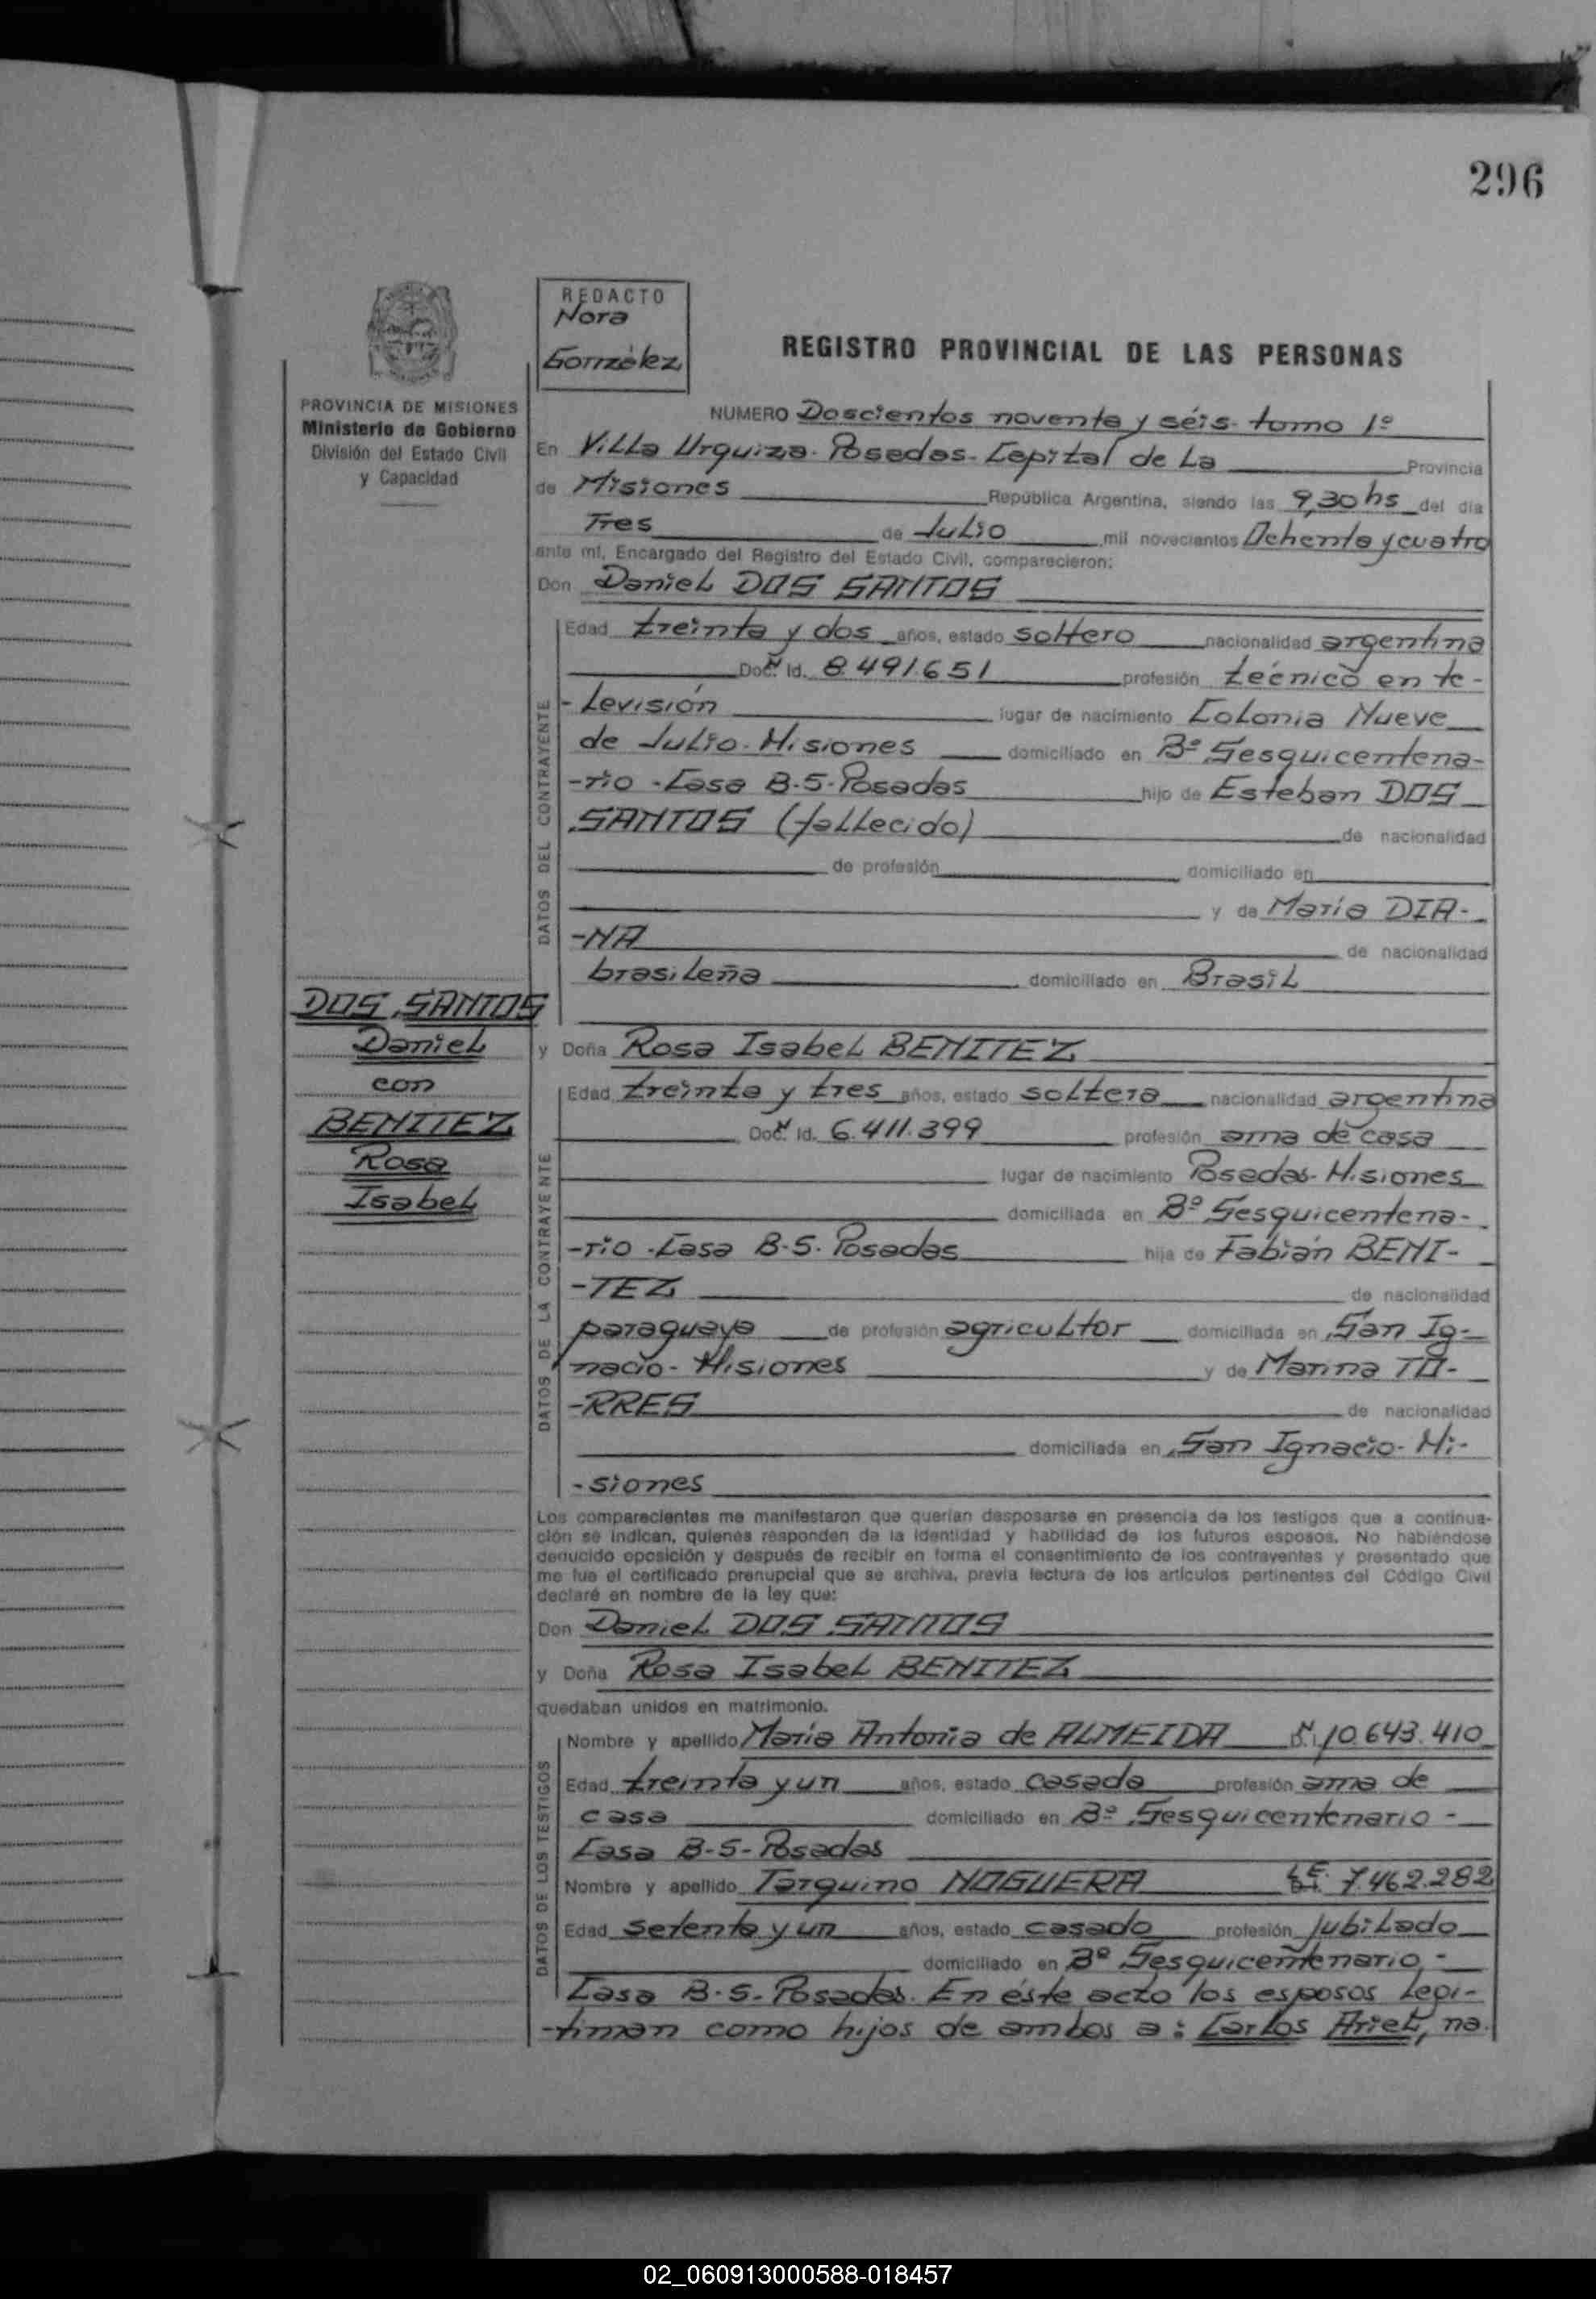 296
REDACTO
Nora
González
REGISTRO PROVINCIAL DE LAS PERSONAS
PROVINCIA DE MISIONES
Ministerio de Gobierno
División del Estado Civil
y Capacidad
NUMERO Doscientos noventa y séis - tomo 1º
En Villa Urquiza - Posadas - Capital de La Provincia
de Misiones República Argentina, siendo las 9,30 hs del día
Tres de Julio mil novecientos Ochenta y cuatro
ante mí, Encargado del Registro del Estado Civil, comparecieron:
Don Daniel DOS SANTOS
DATOS DEL CONTRAYENTE
Edad treinta y dos años, estado soltero nacionalidad argentina
Doc. Id. 8.491.651 profesión técnico en te-
-levisión lugar de nacimiento Colonia Nueve
de Julio - Misiones domiciliado en Bº Sesquicentena-
-rio - Casa B-5 - Posadas hijo de Esteban DOS
SANTOS (fallecido) de nacionalidad
de profesión domiciliado en
y de María DIA-
-NA de nacionalidad
brasileña domiciliado en Brasil
DOS SANTOS
Daniel
con
BENITEZ
Rosa
Isabel
y Doña Rosa Isabel BENITEZ
DATOS DE LA CONTRAYENTE
Edad treinta y tres años, estado soltera nacionalidad argentina
Doc. Id. 6.411.399 profesión ama de casa
lugar de nacimiento Posadas - Misiones
domiciliada en Bº Sesquicentena-
-rio - Casa B-5 - Posadas hija de Fabián BENI-
-TEZ de nacionalidad
paraguaya de profesión agricultor domiciliada en San Ig-
nacio - Misiones y de Marina TO-
-RRES de nacionalidad
domiciliada en San Ignacio - Mi-
-siones
Los comparecientes me manifestaron que querían desposarse en presencia de los testigos que a continua-
ción se indican, quienes responden de la identidad y habilidad de los futuros esposos. No habiéndose
deducido oposición y después de recibir en forma el consentimiento de los contrayentes y presentado que
me fue el certificado prenupcial que se archiva, previa lectura de los artículos pertinentes del Código Civil
declaré en nombre de la ley que:
Don Daniel DOS SANTOS
y Doña Rosa Isabel BENITEZ
quedaban unidos en matrimonio.
DATOS DE LOS TESTIGOS
Nombre y apellido María Antonia de ALMEIDA 10.643.410
Edad treinta y un años, estado casada profesión ama de
casa domiciliado en Bº Sesquicentenario -
Casa B-5 - Posadas
Nombre y apellido Tarquino NOGUERA L.E. 7.462.282
Edad setenta y un años, estado casado profesión jubilado
domiciliado en Bº Sesquicentenario -
Casa B-5 - Posadas. En éste acto los esposos legi-
-timan como hijos de ambos a: Carlos Ariel, na
02_060913000588-018457